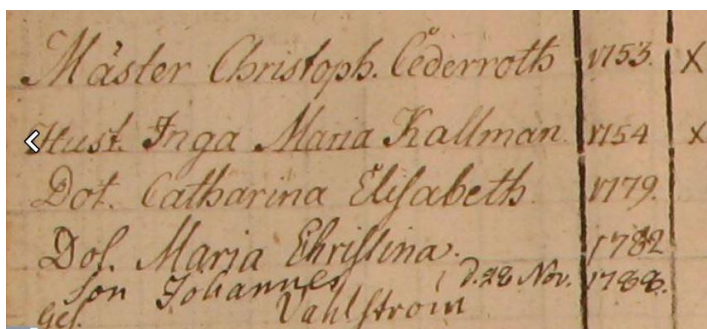 Mäster Christoph. Cederroth 1753. X
Hust. Inga Maria Kallman 1754 X
Dot. Catharina Elisabeth 1779.
Dot. Maria Christina. 1782
Son Johannes d. 28 Nov. 1788.
Ges. Vahlström